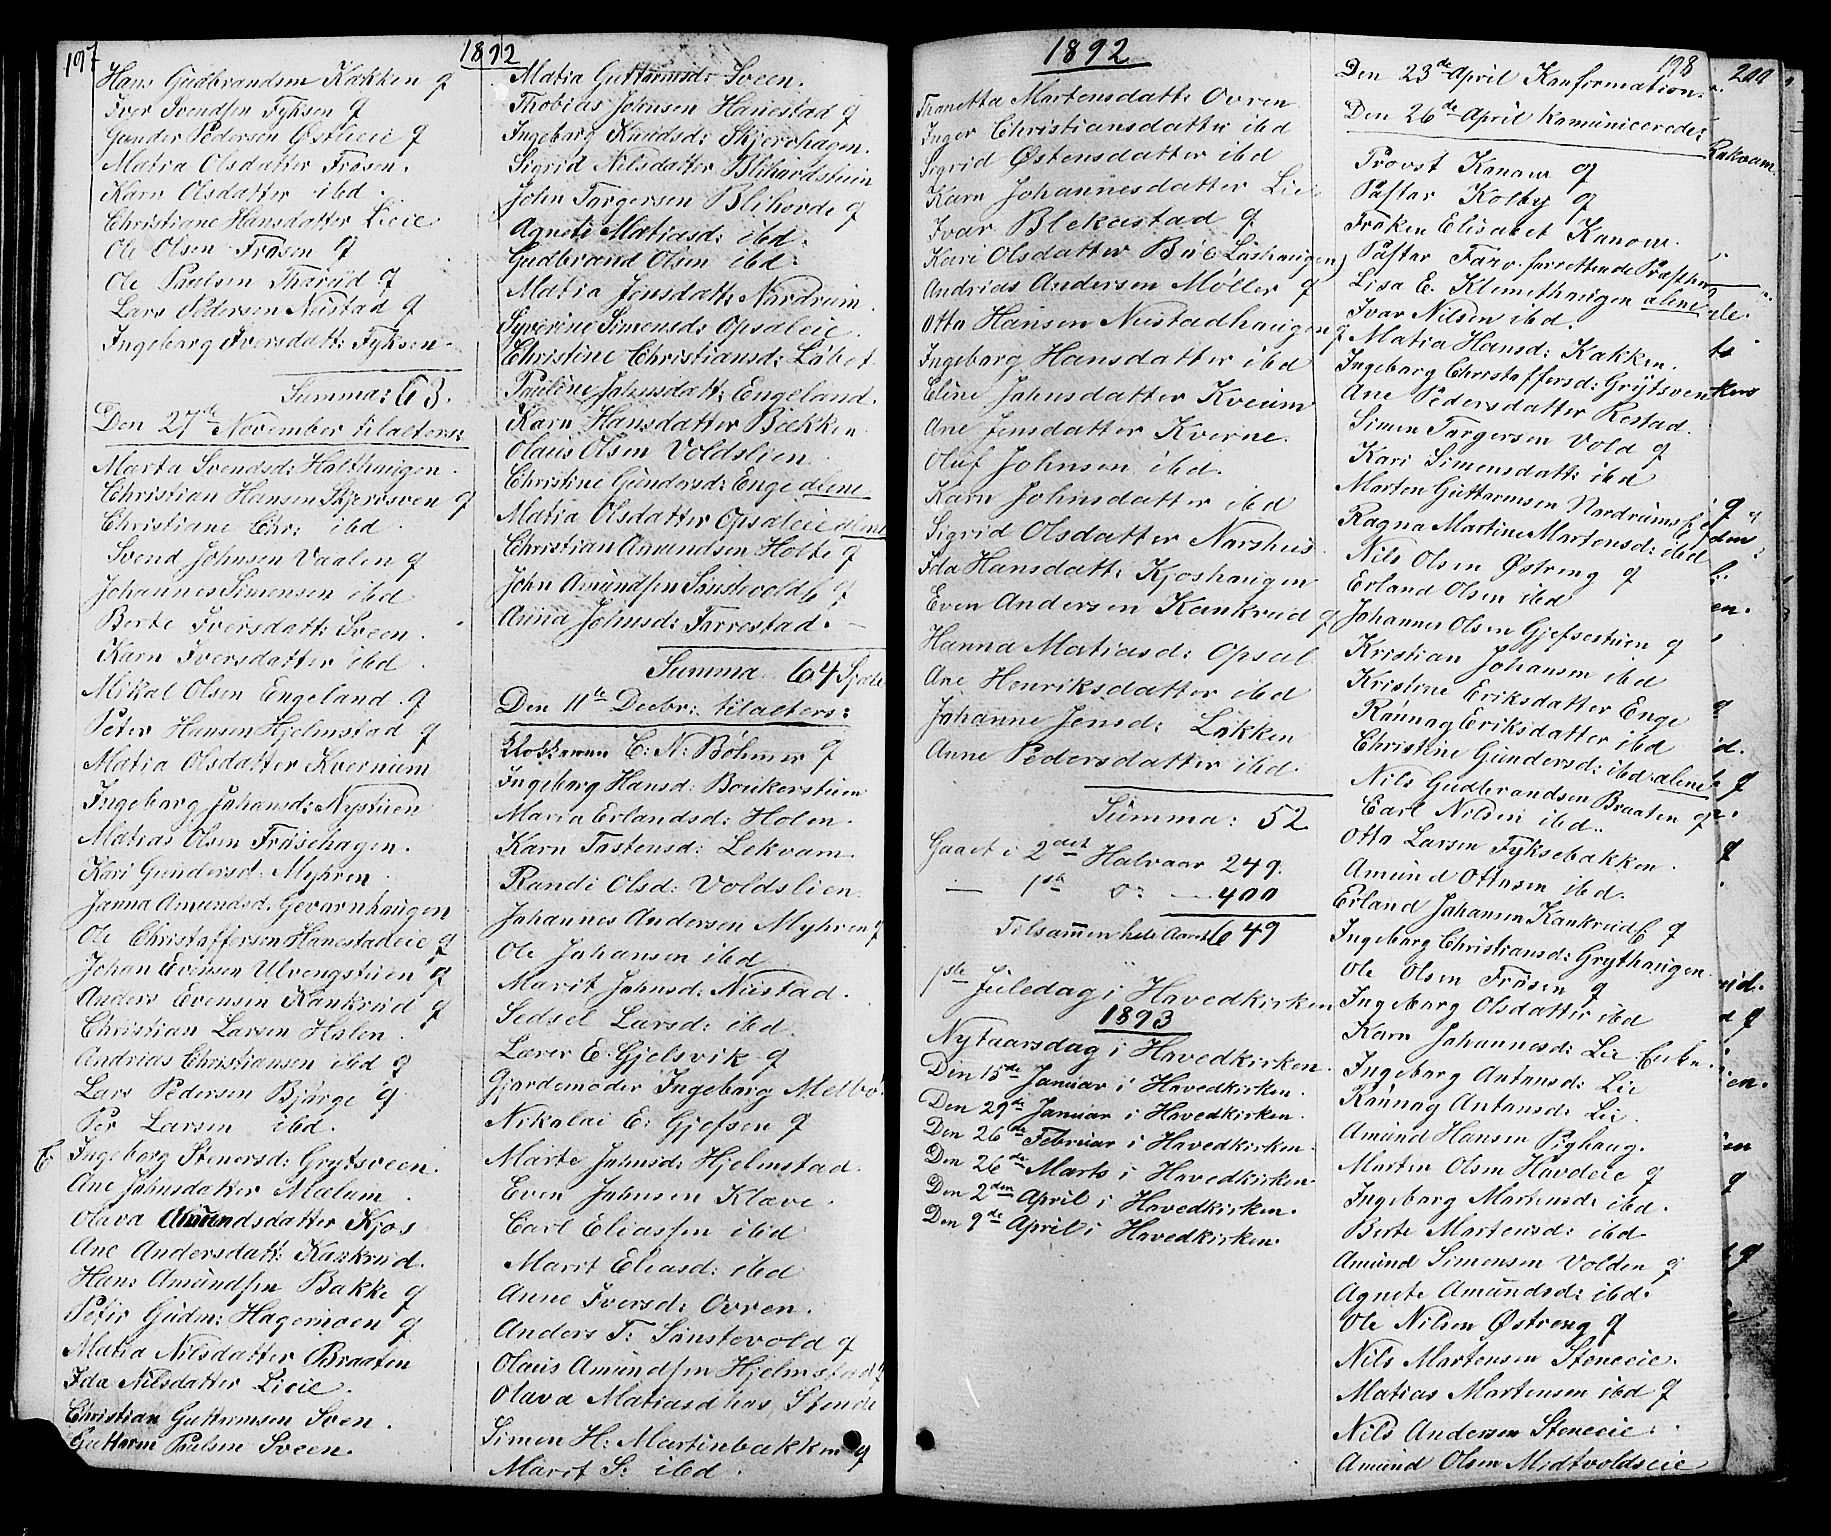 197
1892
Hans Gudbrandsen Kakken g
Iver Svendsen Fyksen g
Gunder Pedersen Østlieie g
Matia Olsdatter Frösen.
Karn Olsdatter ibd.
Christiane Hansdatter Lieie
Ole Olsen Frösen g
Ole Paulsen Tharud g
Lars Pedersen Nustad g
Ingeborg Iversdatt: Fyksen
Summa: 63.
Den 27de November tilalters:
Marta Svendsd: Holthaugen.
Christian Hansen Skjersven g
Christiane Chr: ibd.
Svend Johnsen Vaalen g
Johannes Simensen ibd
Berte Iversdatt: Sveen.
Karn Iversdatter ibd.
Mikal Olsen Engeland. g
Peter Hansen Hjelmstad g
Matia Olsdatter Kvernum
Ingeborg Johansd: Nystuen
Matias Olsen Frösehagen.
Kari Gundersd: Myhren.
Janna Amundsd. Gevarnhaugen
Ole Christoffersen Hanestadeie g
Johan Evensen Ulvengstuen g
Anders Evensen Kankrud g
Christian Larsen Holen.
Andrias Christiansen ibd g
Lars Pedersen Bjørge g
Per Larsen ibd.
E Ingeborg Stenersd: Grytsveen.
Ane Johnsdatter Mælum.
Olava Amundsdatter Kjos
Ane Andersdatt: Kankrud.
Hans Amundsen Bakke g
Peter Gudm: Hagemoen g
Matia Nilsdatter Braaten
Ida Nilsdatter Lieie.
Christian Guttormsen Sven.
Guttorm Paulsen Sveen.
Matia Guttormsd: Sveen.
Thobias Johnsen Hanestad g
Ingeborg Knudsd: Skjerdhagm.
Sigrid Nilsdatter Blihördstuen
John Torgersen Blihorde g
Agnete Matiasd: ibd:
Gudbrand Olsen ibd:
Matia Jensdatt: Nordrum.
Syverine Simensd: Opsaleie.
Christine Christiansd: Løbet.
Pauline Johnsdatt: Engeland.
Karn Hansdatter Bækken
Olaus Olsen Voldslien.
Christine Gundersd: Enge alene
Matia Olsdatter Opsaleie alene
Christian Amundsen Holte g
John Amundsen Sustevold E g
Anna Johnsd: Forrestad.
Summa 64 Sjæle
Den 11te Decbr: tilalters:
Klokkeren C: N: Böhmer g
Ingeborg Hansd: Baukerstuen
Maria Erlandsd: Holen.
Karn Tostensd: Lekvam
Randi Olsd: Voldslien.
Johannes Andersen Myhren g
Ole Johansen ibd.
Marit Johnsd: Nustad.
Sedsel Larsd: ibd.
Lærer E. Gjelsvik g
Gjordemoder Ingeborg Melbö
Nikolai E: Gjefsen g
Marte Johnsd: Hjelmstad.
Even Johnsen Klæve.
Carl Eliassen ibid
Marit Eliasd: ibd
Anne Iversd: Ovren.
Anders T: Sönstevold g
Olaus Amundsen Hjelmstad g
Olava Matiasd hos Stende
Simen H: Martinbakken g
Marit S: ibd.
1892
Thonetta Martensdatt: Ovren
Inger Christiansdatter ibd
Sigrid Østensdatter ibd
Karn Johannesdatter Lie
Ivar Blekastad g.
Kari Olsdatter Bue Løshaugen)
Andrias Andersen Møller g
Otto Hansen Nustadhaugen g
Ingeborg Hansdatter ibd
Eline Johnsdatter Kveum
Ane Jensdatter Kverne.
Oluf Johnsen ibd.
Karn Johnsdatter ibd
Sigrid Olsdatter Norshus.
Ida Hansdatt: Kjoshaugen
Even Andersen Kankrud g
Hanna Matiasd: Opsal
Ane Henriksdatter ibd
Johanne Jensd: Løkken
Anne Pedersdatter ibd.
Summa: 52
Gaaet i 2det Halvaar 249.
— 1ste Do: 400
Tilsammen hele Aaret 649
1ste Juledag i Hovedkirken
1893
Nytaarsdag i Hovedkirken.
Den 15de Januar i Hovedkirken.
Den 29de Januar i Hovedkirken.
Den 26de Februar i Hovedkirken.
Den 26de Marts i Hovedkirken.
Den 2den April i Hovedkirken.
Den 9de April i Hovedkirken.
198
Den 23de April Konformation.
Den 26de April Komunicerede:
Provst Kanow g
Pastor Kolby g
Fröken Elisabet Kanow.
Pastor Faro forrettende Præst
Lisa E. Klemethaugen alene
Ivar Nilsen ibd.
Matia Hansd: Kakken.
Ingeborg Christoffersd: Grytsven
Ane Pedersdatter Restad.
Simen Torgersen Vold g
Kari Simensdatt: ibd
Morten Guttormsen Nordrums
Ragna Martine Mortensd: ibd
Nils Olsen Østreng g
Erland Olsen ibd
Johannes Olsen Gjefsestuen g
Kristian Johansen ibd
Kristine Eriksdatter Enge
Rønnag Eriksdatter ibd
Christine Gundersd: ibd: alene
Nils Gudbrandsen Braaten g
Carl Nilsen ibd..
Otto Larsen Fyksebakken.
Amund Ottosen ibd.
Erland Johansen Kankrud E g
Ingeborg Christiansd: Grythaugen.
Ole Olsen Frösen g
Ingeborg Olsdatter ibd
Karn Johannesd: Lie Enke.
Ingeborg Antonsd: Lie
Rønnag Antonsd: Lie.
Amund Hansen Pighaug.
Morten Olsen Havdeie g
Ingeborg Martensd: ibd.
Berte Martensd: ibd.
Amund Simensen Volden g
Agnete Amundsd: ibd.
Ole Nilsen Østreng g
Nils Martensen Steneeie.
Matias Martensen ibd g
Nils Andersen Steneeie.
Amund Olsen Midtvoldseie
200